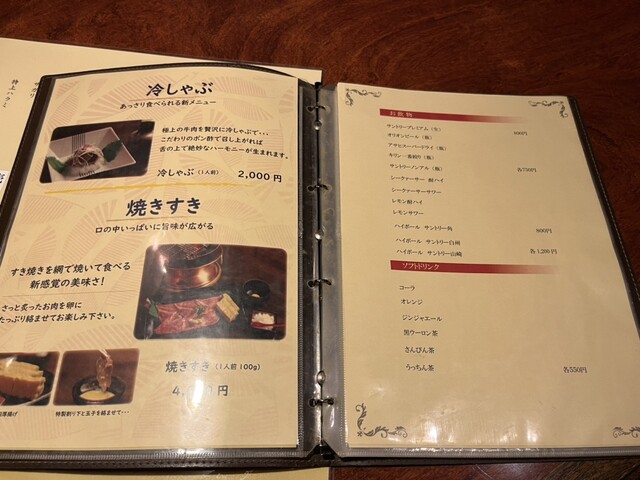 特上ハラミ
冷しゃぶ
あっさり食べられる新メニュー
極上の牛肉を贅沢に冷しゃぶで・・・
こだわりのポン酢で召し上がれば
舌の上で絶妙なハーモニーが生まれます。
冷しゃぶ（1人前） 2,000円
焼きすき
口の中いっぱいに旨味が広がる
すき焼きを網で焼いて食べる
新感覚の美味さ!
さっと炙ったお肉を卵に
たっぷり絡ませてお楽しみ下さい。
焼きすき（1人前 100g）
円
特製割り下と玉子を絡ませて・・・
お飲物
サントリープレミアム（生）
オリオンビール（瓶）
アサヒスーパードライ（瓶）
キリン一番搾り（瓶）
サントリーノンアル（瓶） 各750円
シークァーサー 酎ハイ
シークァーサーサワー
レモン酎ハイ
レモンサワー
ハイボール サントリー角 800円
ハイボール サントリー白州
ハイボール サントリー山崎 各1,200円
ソフトドリンク
コーラ
オレンジ
ジンジャエール
黒ウーロン茶
さんぴん茶
うっちん茶 各550円